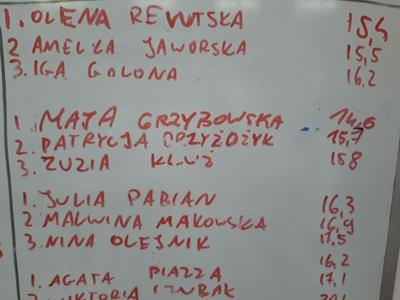 1. OLENA REWTSKA 15,4
2 AMELKA JAWORSKA 15,5
3. IGA GOLONA 16,2
1. MAJA GRZYBOWSKA 14,6
2. PATRYCJA PRZYŻOŻYK 15,7
3. ZUZIA KLUŻ 15,8
1. JULIA PABIAN 16,3
2 MALWINA MAKOWSKA 16,9
3 NINA OLEJNIK 17,5
16,2
1. AGATA PIAZZA 17,1
WIKTORIA